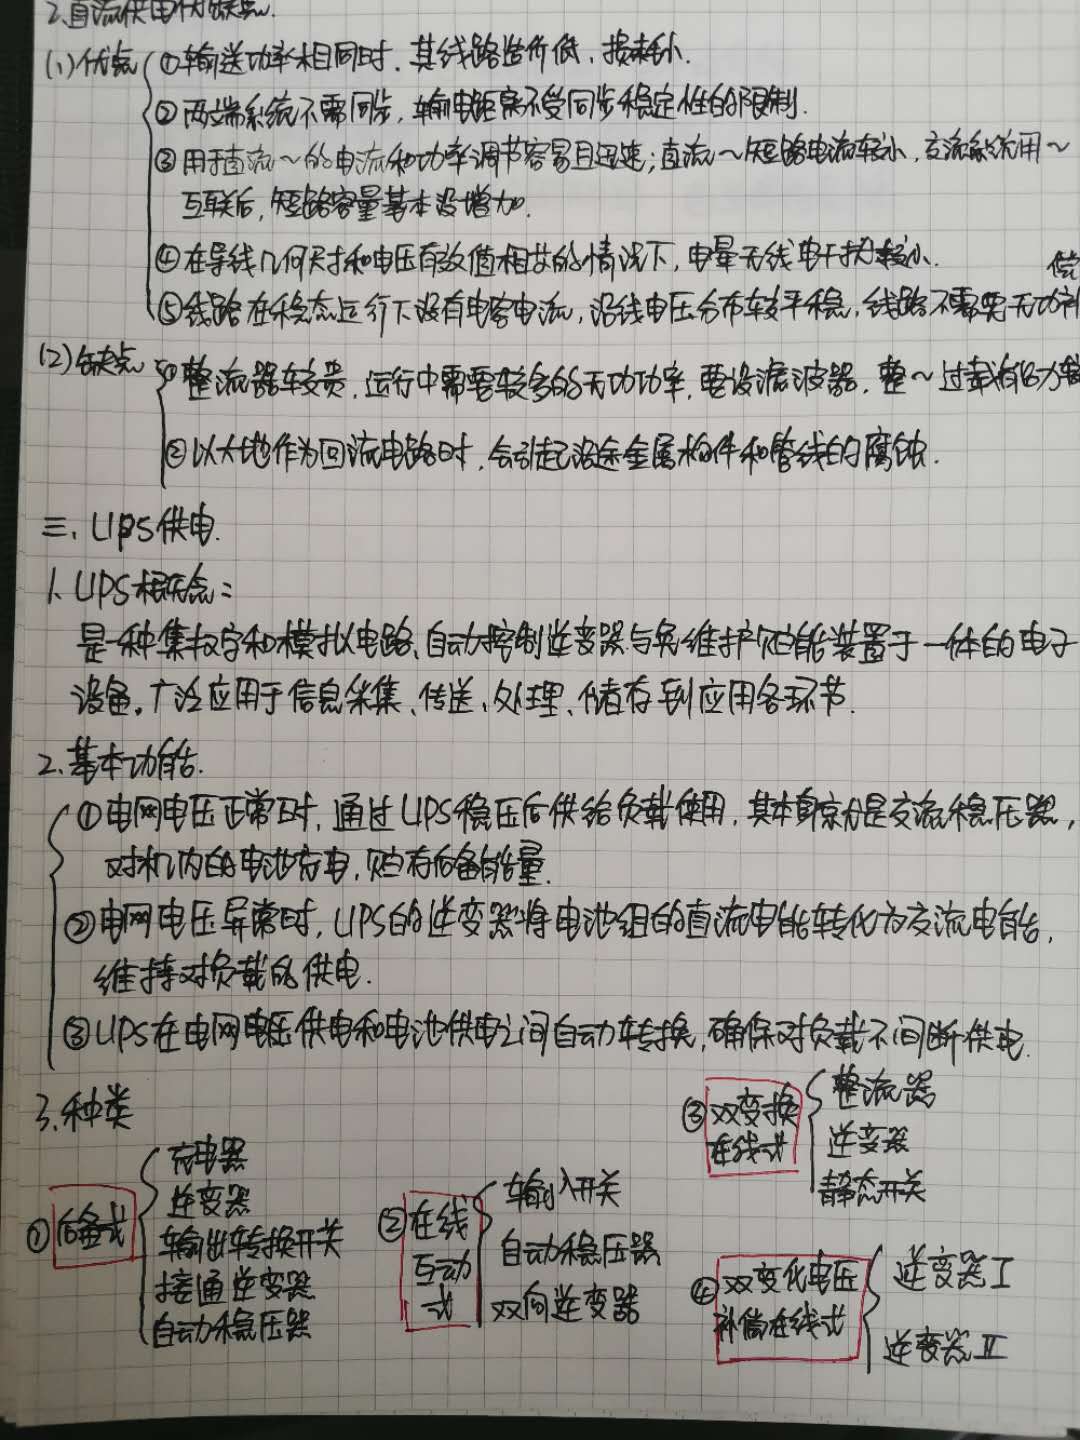 2.直流供电优缺点.
(1)优点 ①输送功率相同时,其线路造价低,损耗小.
②两端系统不需同步,输电距离不受同步稳定性的限制.
③用于直流~的电流和功率调节容易且迅速;直流~短路电流较小,交流系统用~
互联后,短路容量基本没增加.
④在导线几何尺寸和电压有效值相等的情况下,电晕无线电干扰较小.
偿
⑤线路在稳态运行下没有电容电流,沿线电压分布较平稳,线路不需要无功补
(2)缺点 ①整流器较贵,运行中需要较多的无功功率,要设滤波器,整~过载能力较
②以大地作为回流电路时,会引起沿途金属构件和管线的腐蚀.
三、UPS供电.
1.UPS概念:
是一种集数字和模拟电路、自动控制逆变器与免维护贮能装置于一体的电子
设备。广泛应用于信息采集、传送、处理、储存到应用各环节.
2.基本功能.
①电网电压正常时,通过UPS稳压后供给负载使用,其本身就是交流稳压器,
对机内的电池充电,贮存后备能量.
②电网电压异常时,UPS的逆变器将电池组的直流电能转化为交流电能,
维持对负载的供电.
③UPS在电网电压供电和电池供电之间自动转换,确保对负载不间断供电.
3.种类
①后备式
充电器
逆变器
输出转换开关
接通逆变器
自动稳压器
②在线
互动
式
输入开关
自动稳压器
双向逆变器
③双变换
在线式
整流器
逆变器
静态开关
④双变化电压
补偿在线式
逆变器I
逆变器II